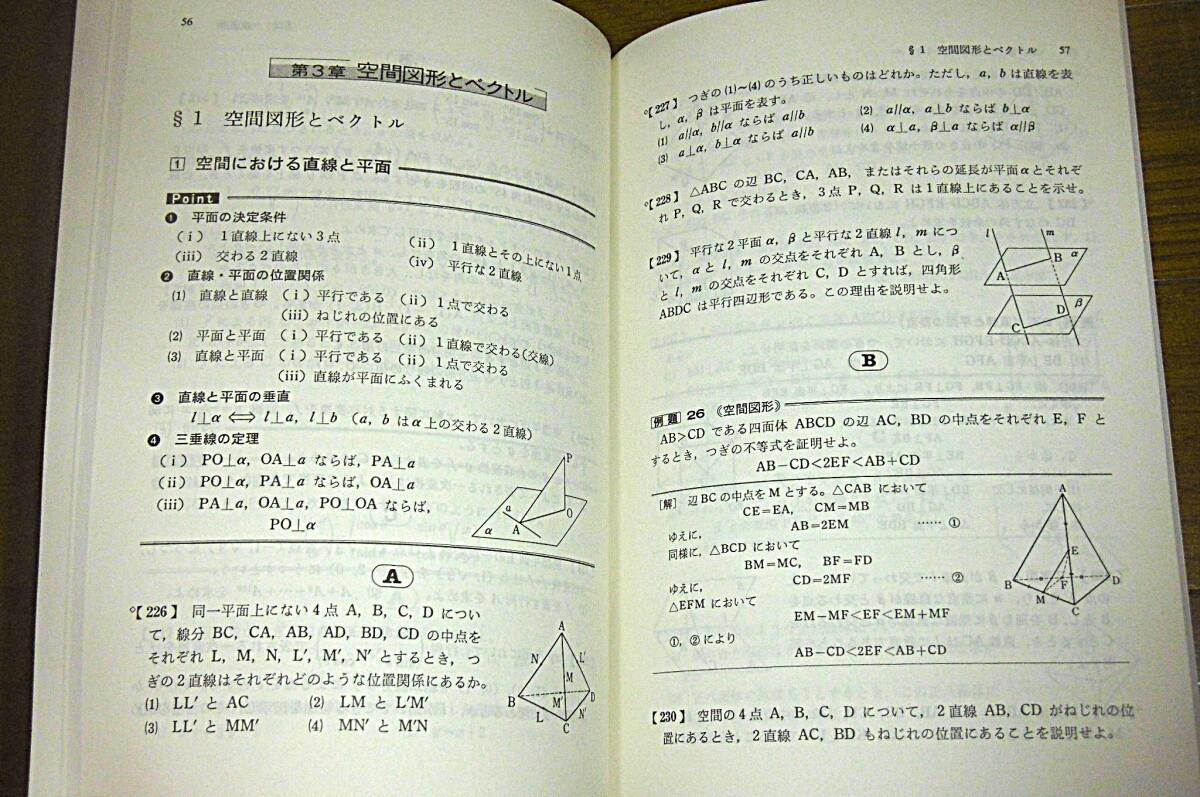 56
第3章 空間図形とベクトル
§1 空間図形とベクトル
1 空間における直線と平面
Point
❶ 平面の決定条件
(ⅰ) 1直線上にない3点 (ⅱ) 1直線とその上にない1点
(ⅲ) 交わる2直線 (ⅳ) 平行な2直線
❷ 直線・平面の位置関係
(1) 直線と直線 (ⅰ)平行である (ⅱ)1点で交わる
(ⅲ)ねじれの位置にある
(2) 平面と平面 (ⅰ)平行である (ⅱ)1直線で交わる(交線)
(3) 直線と平面 (ⅰ)平行である (ⅱ)1点で交わる
(ⅲ)直線が平面にふくまれる
❸ 直線と平面の垂直
l⊥α ⟺ l⊥a, l⊥b (a, bはα上の交わる2直線)
❹ 三垂線の定理
(ⅰ) PO⊥α, OA⊥a ならば, PA⊥a
(ⅱ) PO⊥α, PA⊥a ならば, OA⊥a
(ⅲ) PA⊥a, OA⊥a, PO⊥OA ならば,
PO⊥α
P
a
O
A
α
A
○【226】 同一平面上にない4点 A, B, C, D につい
て, 線分 BC, CA, AB, AD, BD, CD の中点を
それぞれ L, M, N, L′, M′, N′ とするとき, つ
ぎの2直線はそれぞれどのような位置関係にあるか。
(1) LL′ と AC (2) LM と L′M′
(3) LL′ と MM′ (4) MN′ と M′N
A
N
L′
M
B
M′
D
L
N′
C
§1 空間図形とベクトル 57
○【227】 つぎの (1)~(4) のうち正しいものはどれか。ただし, a, b は直線を表
し, α, β は平面を表す。
(1) a//α, b//α ならば a//b (2) a//α, a⊥b ならば b⊥α
(3) a⊥α, b⊥α ならば a//b (4) α⊥a, β⊥a ならば α//β
○【228】 △ABC の辺 BC, CA, AB, またはそれらの延長が平面αとそれぞ
れ P, Q, R で交わるとき, 3点 P, Q, R は1直線上にあることを示せ。
【229】 平行な2平面 α, β と平行な2直線 l, m につ
いて, α と l, m の交点をそれぞれ A, B とし, β
と l, m の交点をそれぞれ C, D とすれば, 四角形
ABDC は平行四辺形である。この理由を説明せよ。
l
m
B
α
A
D
β
C
B
例題 26 《空間図形》
AB>CD である四面体 ABCD の辺 AC, BD の中点をそれぞれ E, F と
するとき, つぎの不等式を証明せよ。
AB-CD<2EF<AB+CD
[解] 辺BCの中点をMとする。△CAB において
CE=EA, CM=MB
ゆえに, AB=2EM ……①
同様に, △BCD において
BM=MC, BF=FD
ゆえに, CD=2MF ……②
△EFM において
EM-MF<EF<EM+MF
①, ②により
AB-CD<2EF<AB+CD
A
E
B
F
D
M
C
【230】 空間の4点 A, B, C, D について, 2直線 AB, CD がねじれの位
置にあるとき, 2直線 AC, BD もねじれの位置にあることを説明せよ。